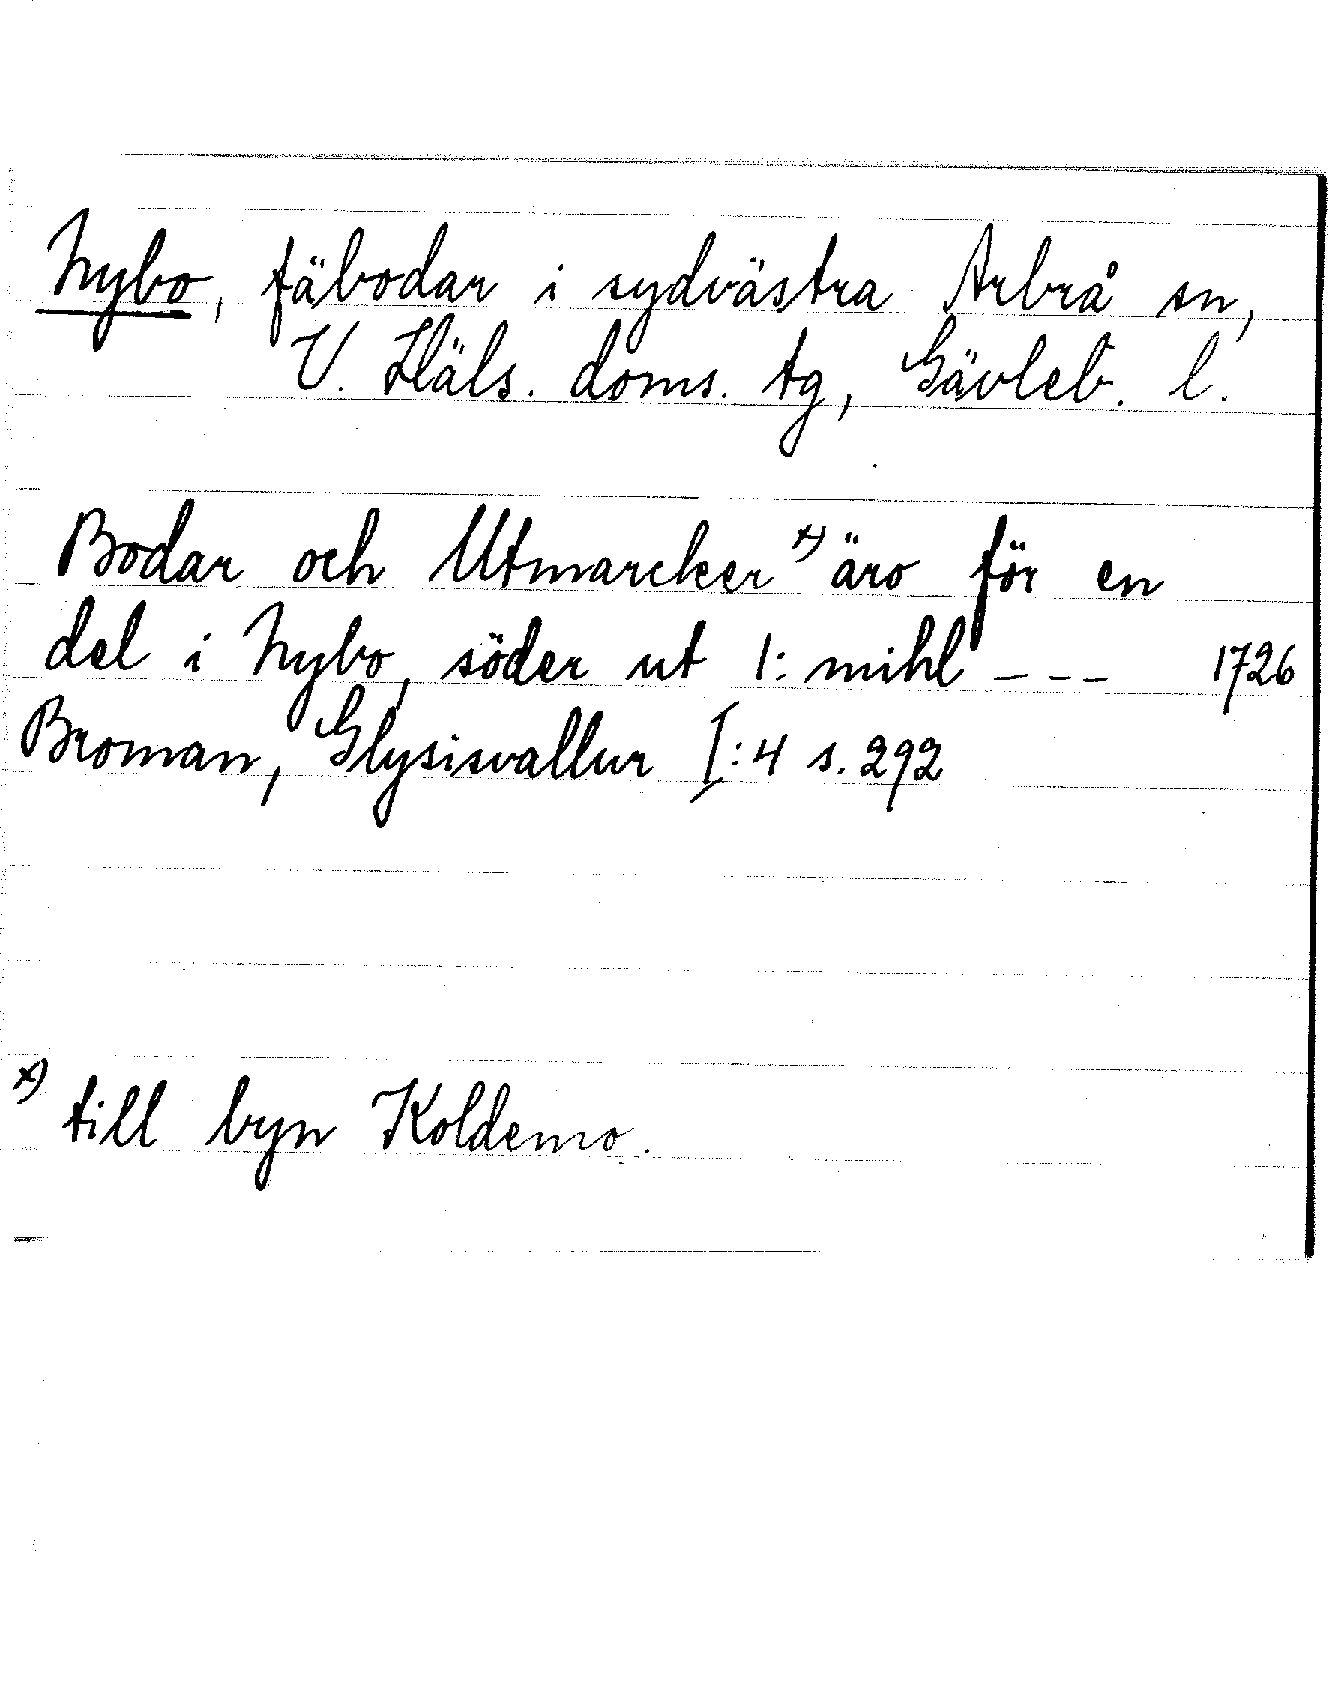 Nybo, fäbodar i sydvästra Arbrå sn,
V. Häls. doms. tg, Gävleb. l.
Bodar och Utmarcker x) äro för en
del i Nybo, söder ut 1: mihl --- 1726
Broman, Glysisvallur I:4 s. 292
x) till byn Koldemo.